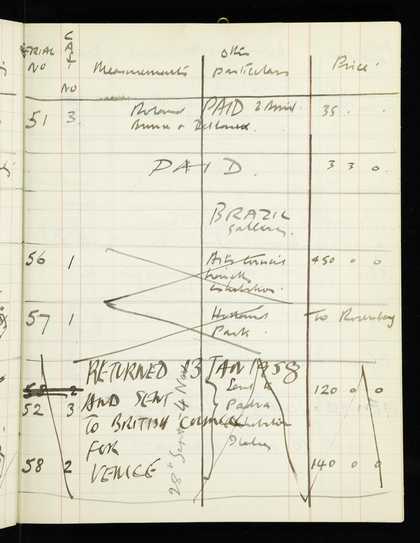 SERIAL NO CAT NO Measurements Other particulars Price
51 3 Roland PAID 35
PAID 3 3 0
BRAZIL
gallery.
56 1 Arts Council 450 0 0
travelling
exhibition
57 1 Holland To Rosenberg
Park.
RETURNED 13 JAN 1958
58 2 Sent to 120 0 0
52 3 AND SENT Padua
TO BRITISH COUNCIL exhibition
FOR Italy
58 2 VENICE 140 0 0
28th Sept - 4 Nov